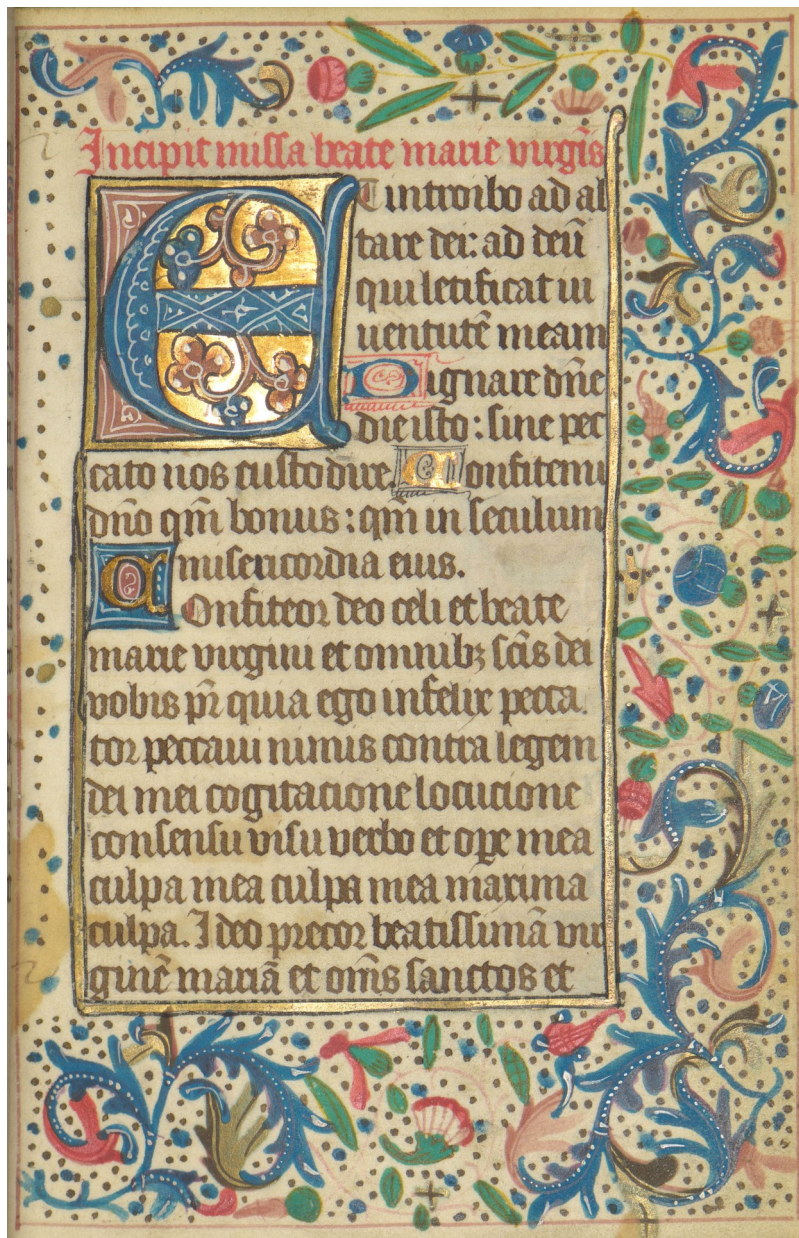 Incipit missa beate marie virgīs
Et introibo ad al
tare dei: ad deū
qui letificat iu
uentutē meam
Dignare dñe
die isto: sine pec
cato nos custodire. Confitemi
dño qm̄ bonus: qm̄ in seculum
misericordia eius.
Confiteor deo celi et beate
marie virgini et omnibꝫ scīs dei
vobis pr̄ quia ego infelix pecca
tor peccaui nimis contra legem
dei mei cogitacione locucione
consensu visu verbo et oꝑe mea
culpa mea culpa mea maxima
culpa. Ideo precor beatissimā vir
ginē mariā et om̄s sanctos et